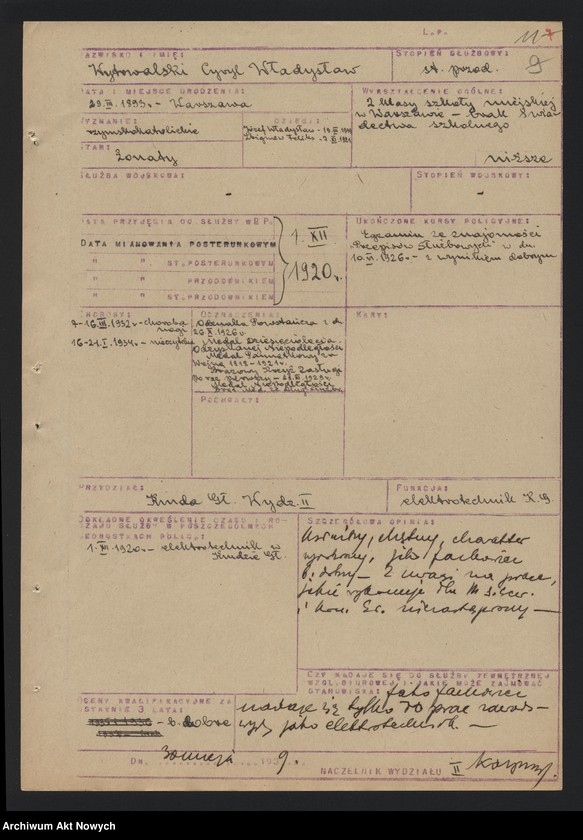 L.p.
11
9
NAZWISKO I IMIĘ:
Wytowalski Cyryl Władysław
STOPIEŃ SŁUŻBOWY:
st. przod.
DATA I MIEJSCE URODZENIA:
1893r. - Warszawa
WYKSZTAŁCENIE OGÓLNE:
2 klasy szkoły miejskiej
w Warszawie - brak świa-
dectwa szkolnego
niższe
WYZNANIE:
rzymskokatolickie
DZIECI:
Józef Władysław -
Zbigniew Feliks -
STAN:
żonaty
SŁUŻBA WOJSKOWA:
-
STOPIEŃ WOJSKOWY:
-
DATA PRZYJĘCIA DO SŁUŻBY W P.P.
DATA MIANOWANIA POSTERUNKOWYM
" " ST.POSTERUNKOWYM
" " PRZODOWNIKIEM
" " ST. PRZODOWNIKIEM
1. XII
1920r.
UKOŃCZONE KURSY POLICYJNE:
Egzamin ze znajomości
Przepisów Służbowych w dn.
10.VI.1926r. - z wynikiem dobrym
CHOROBY:
7-16.III.1932r. - choroba
nogi
16-21.I.1934r. -
ODZNACZENIA:
Odznaka Powstańcza z d.
20.X.1926r.
Medal Dziesięciolecia
Odzyskanej Niepodległości
Medal Pamiątkowy za
Wojnę 1918-1921r.
Brązowy Krzyż Zasługi
po raz pierwszy - 1929r.
Medal Niepodległości
KARY:
POCHWAŁY:
PRZYDZIAŁ:
Kmda Gł. Wydz. II
FUNKCJA:
elektrotechnik K.G.
DOKŁADNE OKREŚLENIE CZASU I RO-
DZAJU SŁUŻBY W POSZCZEGÓLNYCH
JEDNOSTKACH POLICJI:
1.XII.1920r. - elektrotechnik w
Kmdzie Gł.
SZCZEGÓŁOWA OPINIA:
charakter
wyrobiony, jako fachowiec
b. dobry - Z uwagi na prace,
jakie wykonuje dla
niezastąpiony -
CZY NADAJE SIĘ DO SŁUŻBY ZEWNĘTRZNEJ
WZGL.BIUROWEJ I JAKIE MOŻE ZAJMOWAĆ
STANOWISKA:
Jako fachowiec
nadaje się tylko do prac zawodo-
wych jako elektrotechnik. -
OCENY KWALIFIKACYJNE ZA
OSTATNIE 3 LATA:
- b. dobre
Dn. 30 maja 1939.
NACZELNIK WYDZIAŁU II
Archiwum Akt Nowych